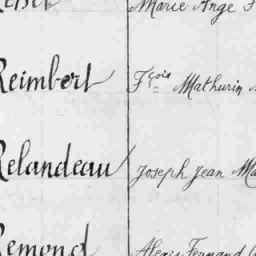 Marie Ange
Reimbert Fçois Mathurin
Relandeau Joseph Jean
Remond Alexis Fernand